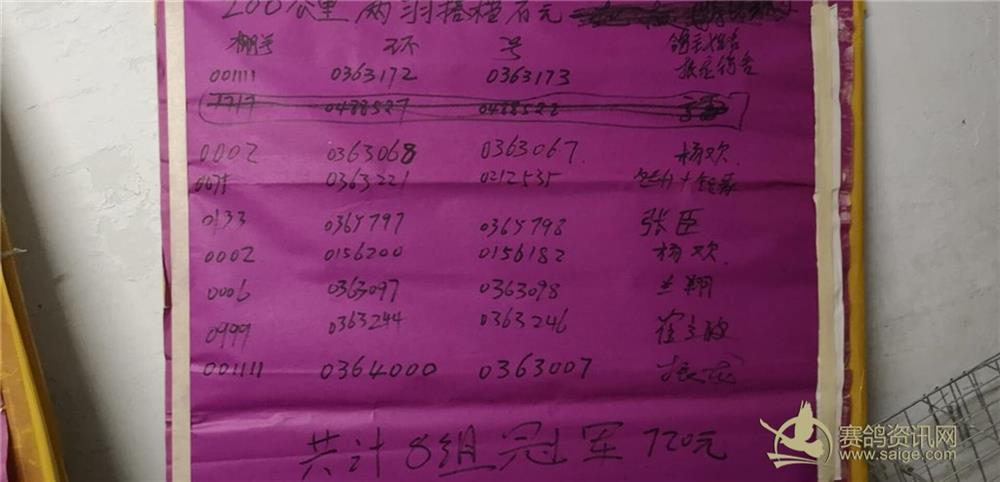 200公里两羽搭档百元
棚号 环 号 鸽主姓名
001111 0363172 0363173
7717 0488527 0488522
0002 0363068 0363067 杨欢
0075 0363221 0212535
0133 0365797 0365798 张臣
0002 0156200 0156182 杨欢
0006 0363097 0363098 兰翔
0999 0363244 0363246 崔立政
001111 0364000 0363007 振龙
共计8组冠军720元
赛鸽资讯网
www.saige.com